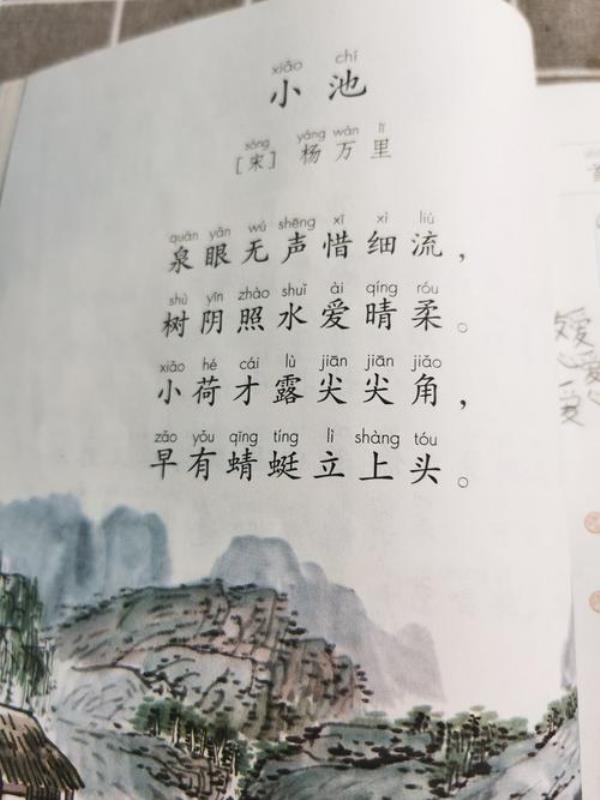 xiǎo chí
小池
sòng yáng wàn lǐ
[宋] 杨万里
quán yǎn wú shēng xī xì liú
泉眼无声惜细流，
shù yīn zhào shuǐ ài qíng róu
树阴照水爱晴柔。
xiǎo hé cái lù jiān jiān jiǎo
小荷才露尖尖角，
zǎo yǒu qīng tíng lì shàng tóu
早有蜻蜓立上头。
爱